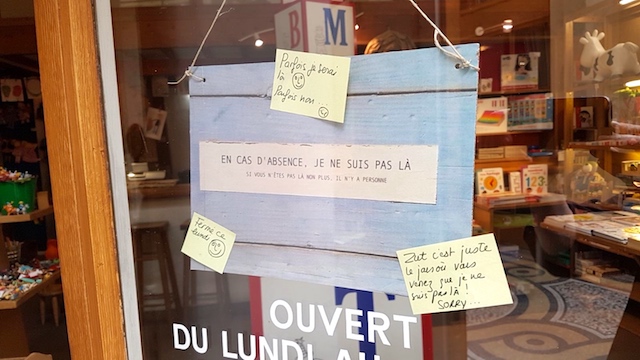 B
M
Parfois je serai
là
Parfois non...
EN CAS D'ABSENCE, JE NE SUIS PAS LÀ
SI VOUS N'ÊTES PAS LÀ NON PLUS, IL N'Y A PERSONNE
Fermé ce
lundi
Zut c'est juste
le jour où vous
venez que je ne
suis pas là !
SORRY...
OUVERT
DU LUNDI AU
123